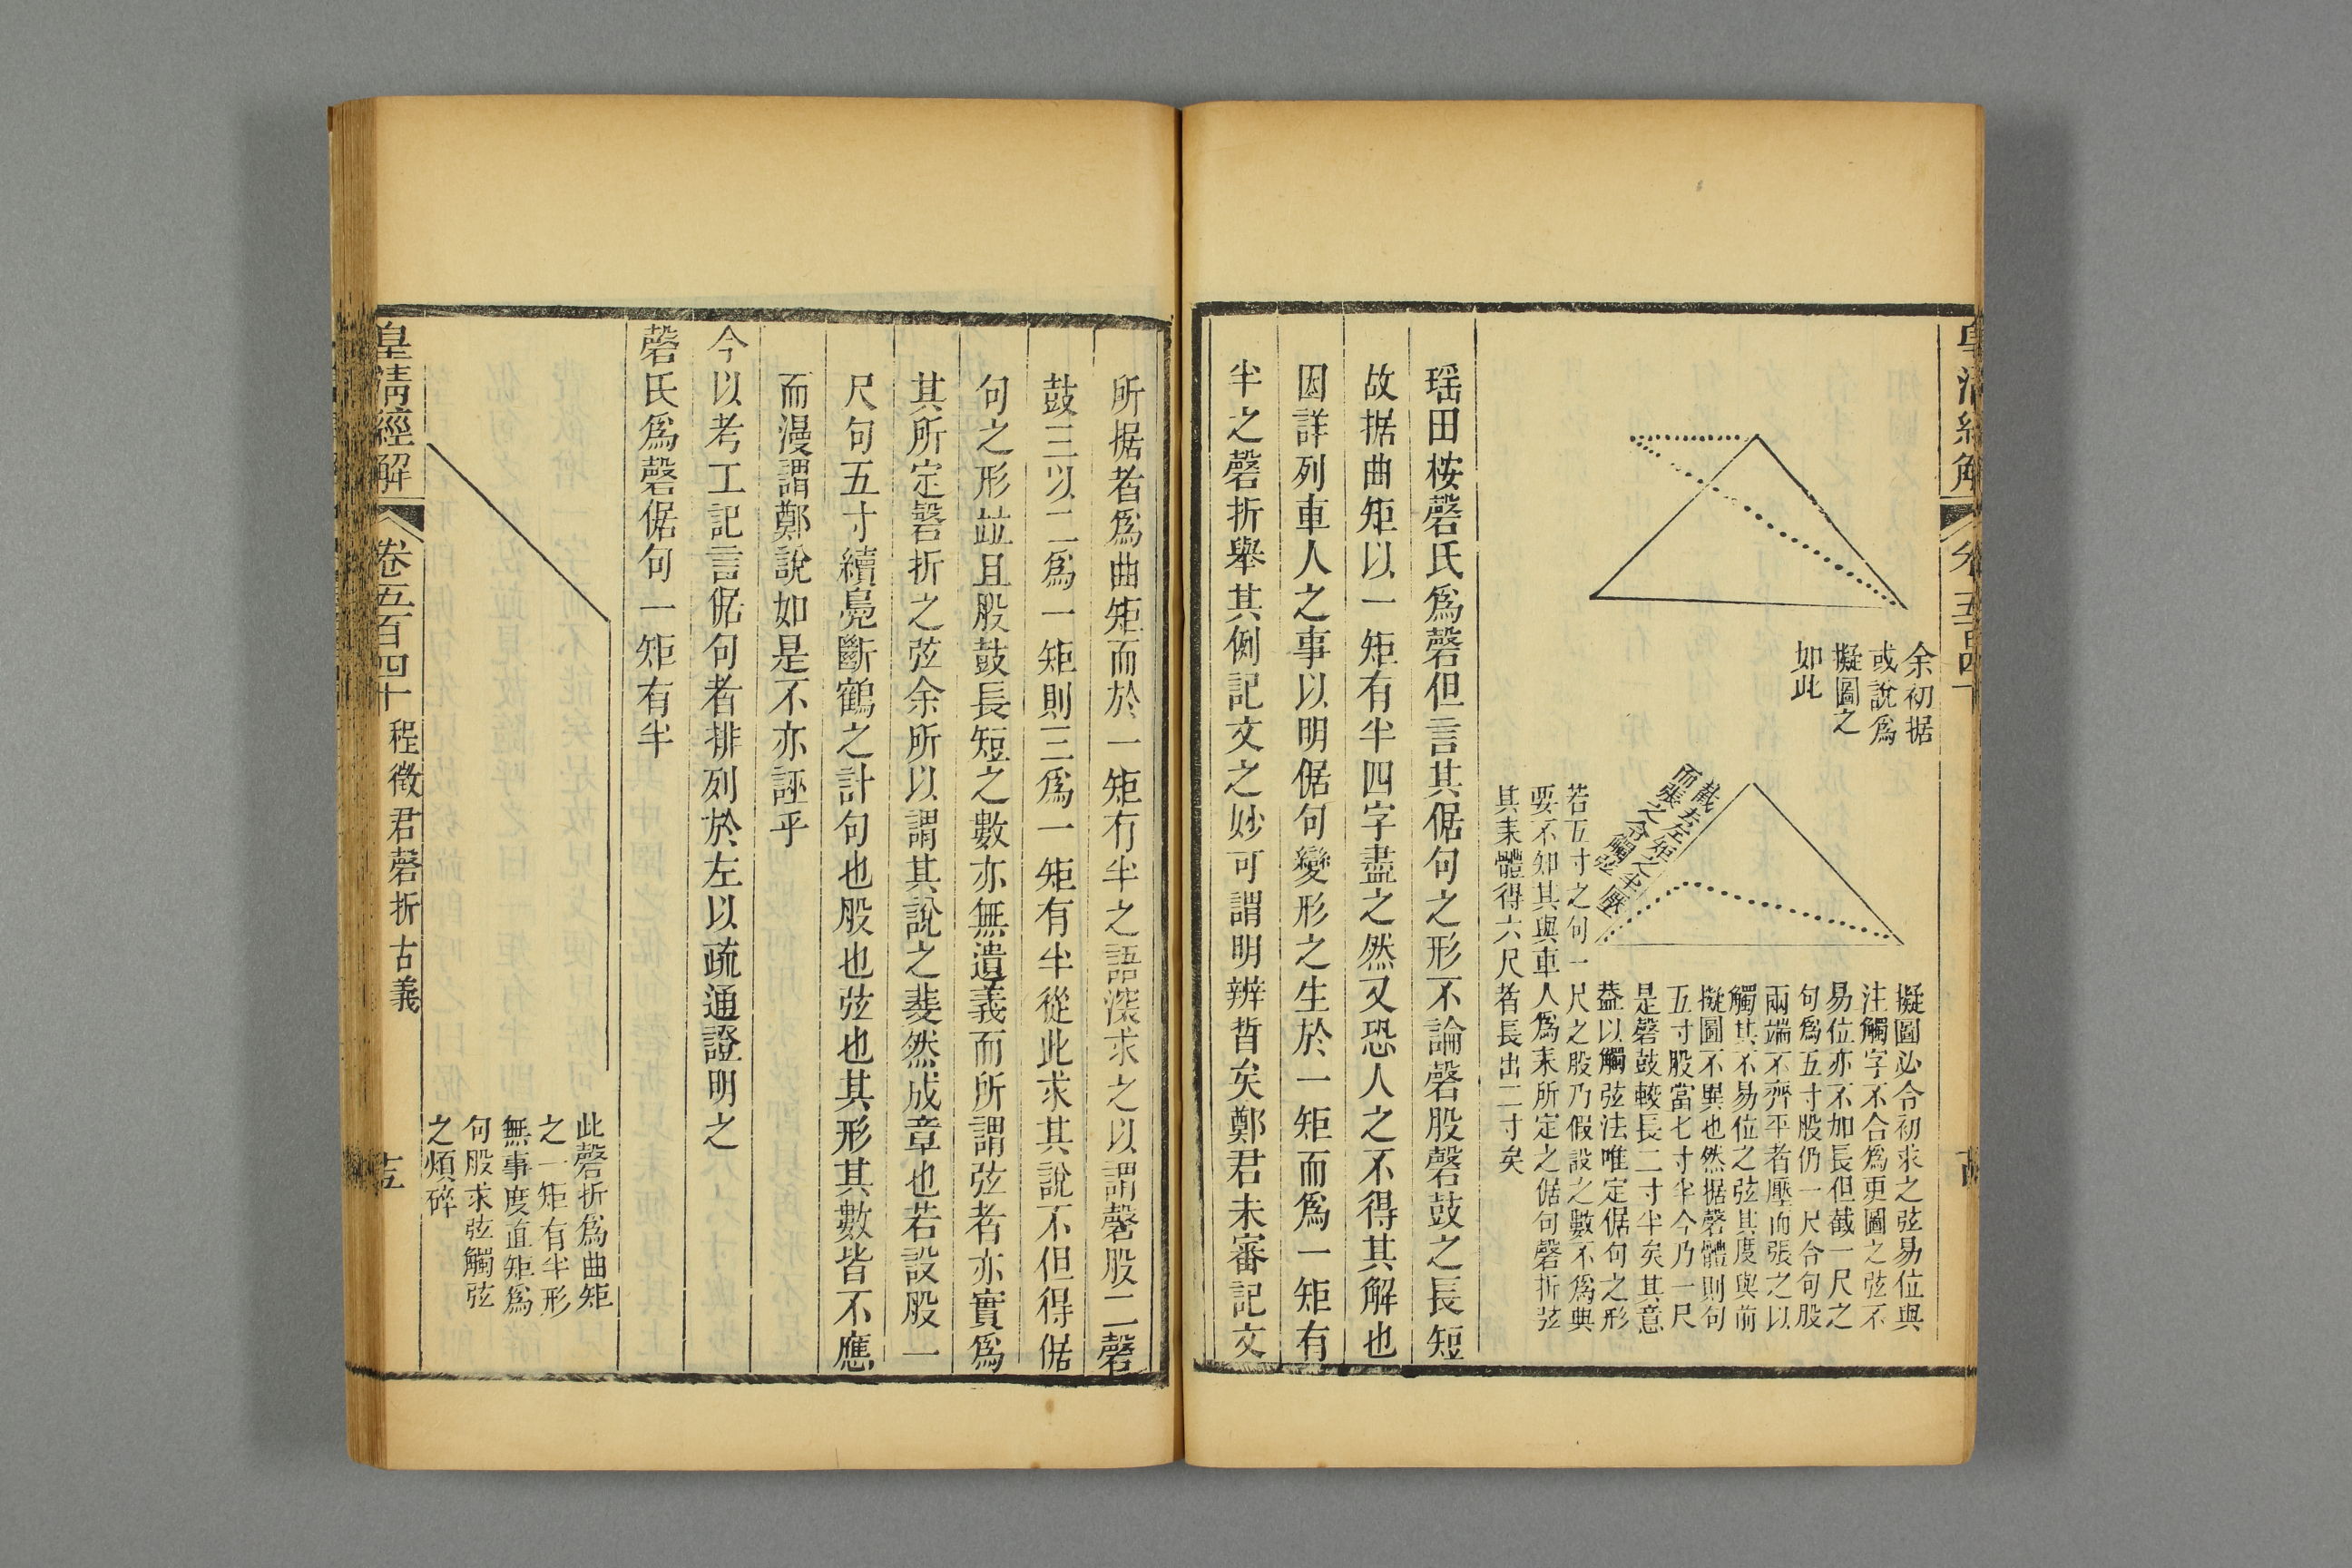 皇清經解
卷五百四十
余初据
或說爲
擬圖之
如此
截去左矩之半壓
而張之合觸弦
擬圖必令初求之弦易位與
注觸字不合爲更圖之弦不
易位亦不加長但截一尺之
句爲五寸股仍一尺合句股
兩端不齊平者壓而張之以
觸其不易位之弦其度與前
擬圖不異也然据磬體則句
五寸股當七寸半今乃一尺
是磬鼓較長二寸半矣其意
葢以觸弦法唯定倨句之形
若五寸之句一尺之股乃假設之數不爲典
要不知其與車人爲耒所定之倨句磬折弦
其耒體得六尺者長出二寸矣
瑶田桉磬氏爲磬但言其倨句之形不論磬股磬鼓之長短
故据曲矩以一矩有半四字盡之然又恐人之不得其解也
因詳列車人之事以明倨句變形之生於一矩而爲一矩有
半之磬折舉其側記文之妙可謂明辨晳矣鄭君未審記文
所据者爲曲矩而於一矩有半之語深求之以謂磬股二磬
鼓三以二爲一矩則三爲一矩有半從此求其說不但得倨
句之形竝且股鼓長短之數亦無遺義而所謂弦者亦實爲
其所定磬折之弦余所以謂其說之斐然成章也若設股一
尺句五寸續鳧斷鶴之計句也股也弦也其形其數皆不應
而漫謂鄭說如是不亦誣乎
今以考工記言倨句者排列於左以疏通證明之
磬氏爲磬倨句一矩有半
此磬折爲曲矩
之一矩有半形
無事度直矩爲
句股求弦觸弦
之煩碎
皇清經解
卷五百四十
程徵君磬折古義